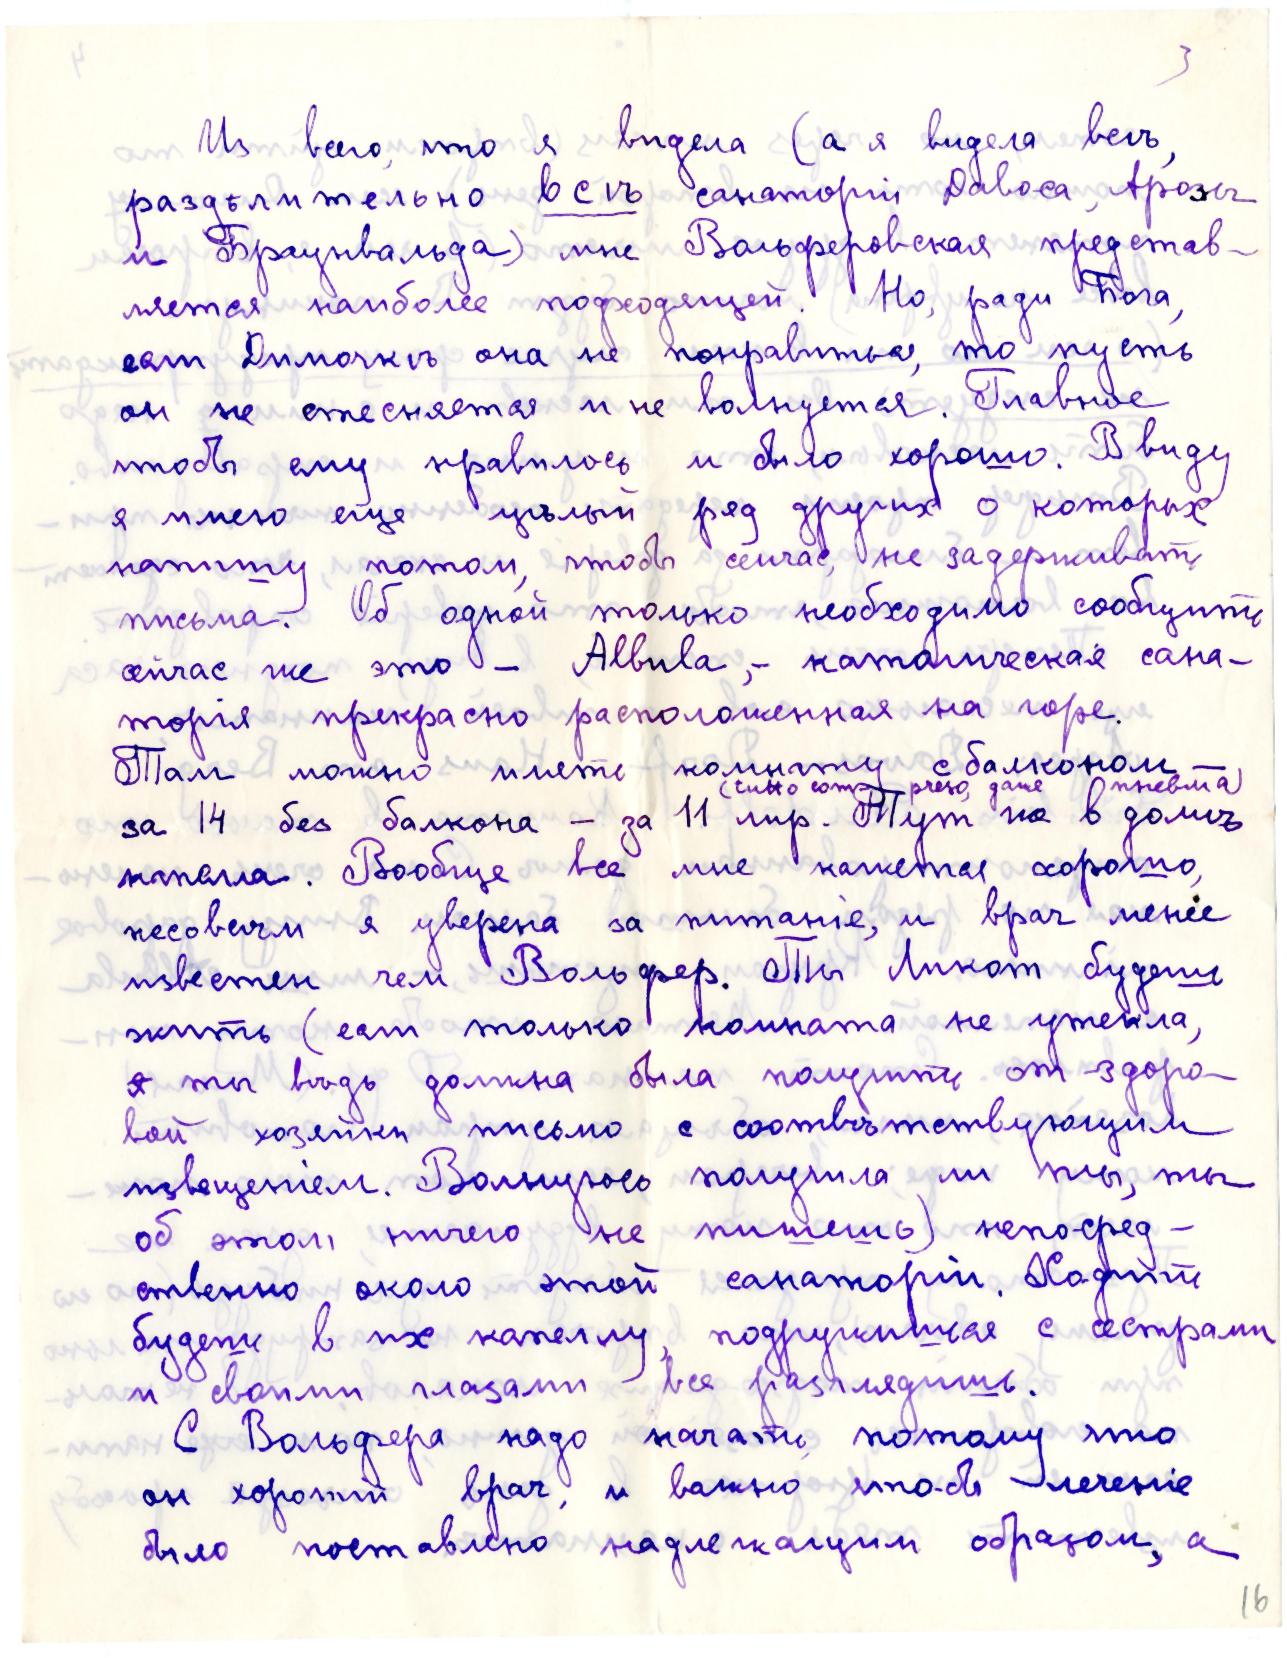 3
Из всего, что я видела (а я видела всѣ,
раздѣлительно всѣ санаторіи Давоса, Арозы
и Браунвальда) мне Вольферовская представ-
ляется наиболее подходящей. Но, ради Бога,
если Димочкѣ она не понравиться, то пусть
он не стесняется и не волнуется. Главное
чтобы ему нравилось и было хорошо. В виду
я имею еще цѣлый ряд других о которых
напишу потом, чтобы сейчас, не задерживать
письма. Об одной только необходимо сообщить
сейчас же это – Albula, – католическая сана-
торія прекрасно расположенная на горе.
Там можно имѣть комнату с балконом –
(tutto compreso, даже пневма)
за 14 без балкона – за 11 лир. Тут же в домѣ
капелла. Вообще все мне кажется хорошо,
не совсѣм я уверена за питаніе, и врач менее
известен чем Вольфер. Ты будешь
жить (если только комната не утекла,
я ты вѣдь должна была получить от здоро-
вой хозяйки письмо с соотвѣтствующим
извещеніем. Волнуюсь получила ли ты, ты
об этом ничего не пишешь) непосред-
ственно около этой санаторіи. Ходить
будешь в их капеллу, подружишься с сестрами
и своими глазами все разглядишь.
С Вольфера надо начать, потому что
он хороший врач, и важно что-бы лечение
было поставлено надлежащим образом, а
16